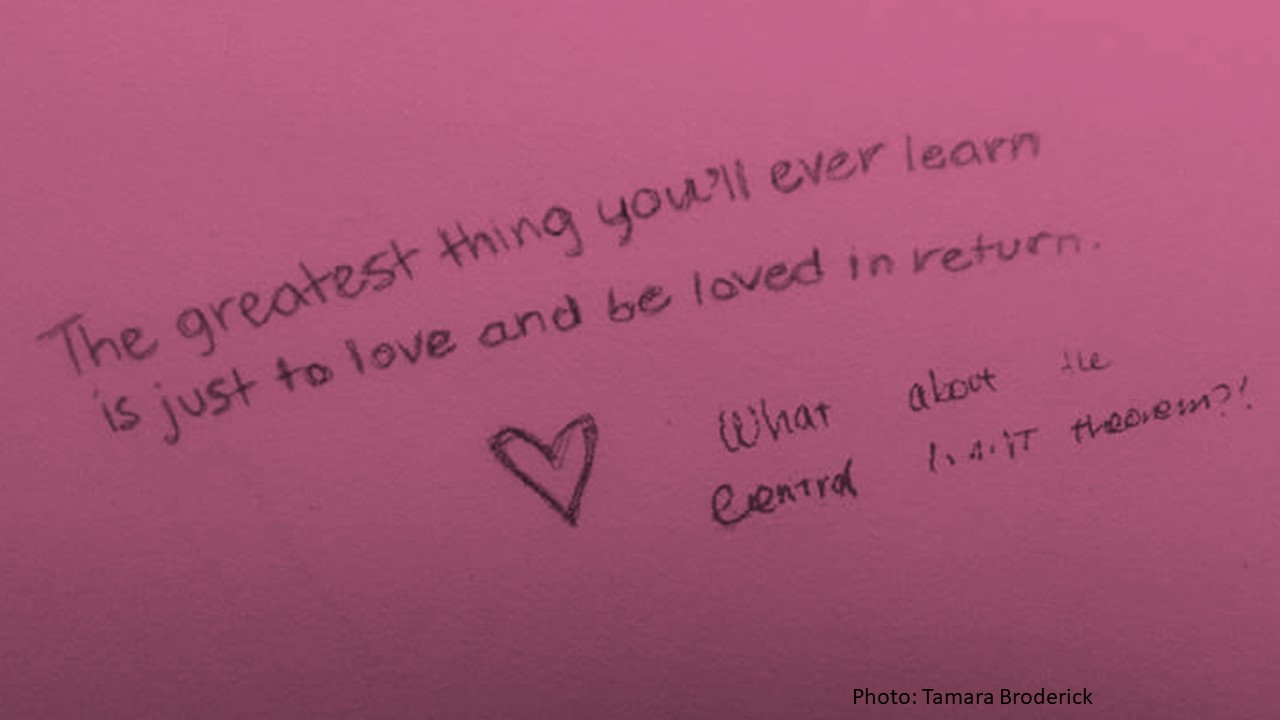 The greatest thing you'll ever learn
is just to love and be loved in return.
What about the
Central limit theorem?!
Photo: Tamara Broderick